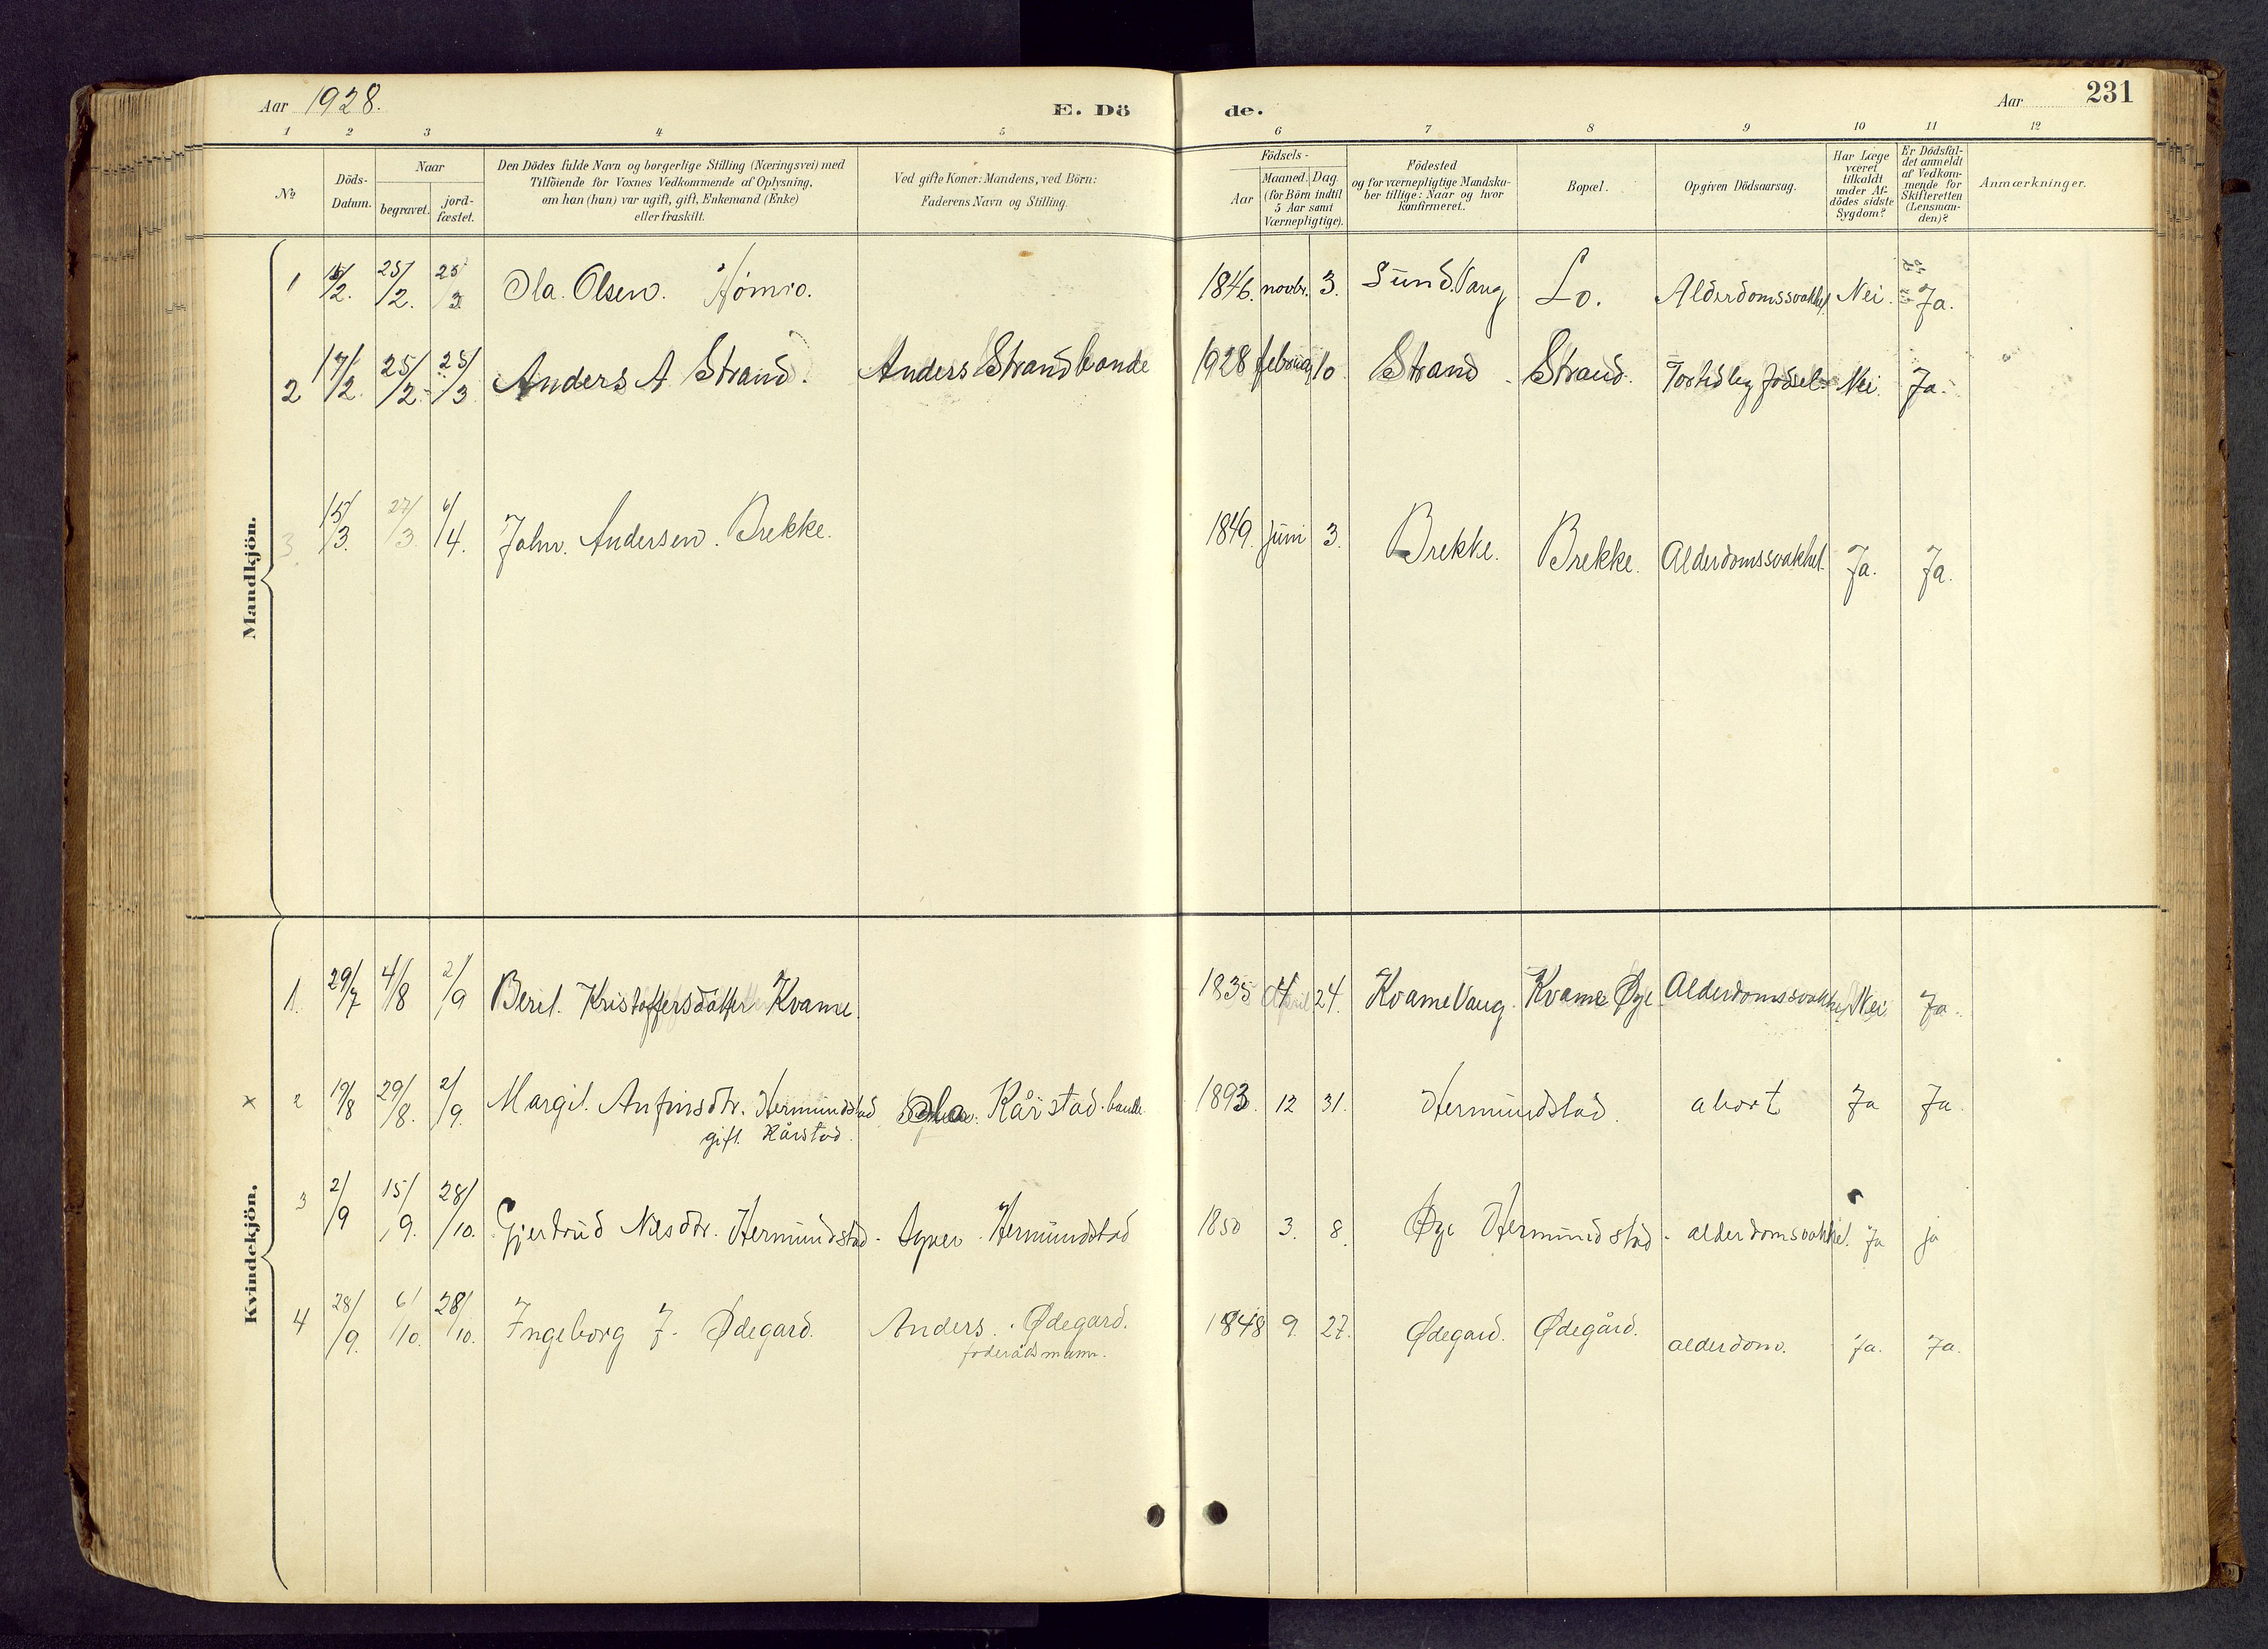 Aar 1928. E. Dö de. Aar 231
1 2 3 4 5 6 7 8 9 10 11 12
No
Döds-Datum.
Naar
begravet. jord-fæstet.
Den Dödes fulde Navn og borgerlige Stilling (Næringsvei) med
Tilföiende for Voxnes Vedkommende af Oplysning,
om han (hun) var ugift, gift, Enkemand (Enke)
eller fraskilt.
Ved gifte Koner: Mandens, ved Börn:
Faderens Navn og Stilling.
Födsels-
Aar
Maaned. Dag.
(for Börn indtil
5 Aar samt
Værnepligtige).
Födested
og for værnepligtige Mandska-
ber tillige: Naar og hvor
konfirmeret.
Bopæl.
Opgiven Dödsaarsag.
Har Læge
været
tilkaldt
under Af-
dödes sidste
Sygdom?
Er Dödsfal-
det anmeldt
af Vedkom-
mende for
Skifteretten
(Lensman-
den)?
Anmærkninger.
Mandkjön.
1 /2. 25/2. 25/3 Ola. Olsen. 1846. novbr. 3. Sund. Vang Lo. Alderdomssvakhet Nei. Ja.
2 17/2. 25/2. 25/3 Anders A Strand. Anders Strand bonde 1928 februar 10 Strand Strand. Fortidlig födsel. Nei. Ja.
3 15/3. 27/3. 6/4. John. Andersen. Brekke. 1849. juni 3. Brekke. Brekke. Alderdomssvakhet. Ja. Ja.
Kvindekjön.
1. 29/7 4/8 2/9 Berit. Kristoffersdatter Kvame. 1835 April 24. Kvame Vang. Kvame Øye Alderdomssvakhet Nei Ja.
x 2 19/8 29/8. 2/9. Margit. Anfinsdtr. Hermundstad Ola Kårstad. bonde 1893. 12 31. Hermundstad. abort Ja Ja.
gift. Kårstad.
3 2/9 15/9. 28/10. Gjertrud Nilsdtr. Hermundstad. Hermundstad 1850 3. 8. Øye Hermundstad. alderdomsvakhet. Ja ja
4 28/9. 6/10. 28/10. Ingeborg J. Ødegard. Anders. Ødegard. 1848 9. 27. Ødegard. Ødegård. alderdom. Ja. Ja.
föderådsmann.